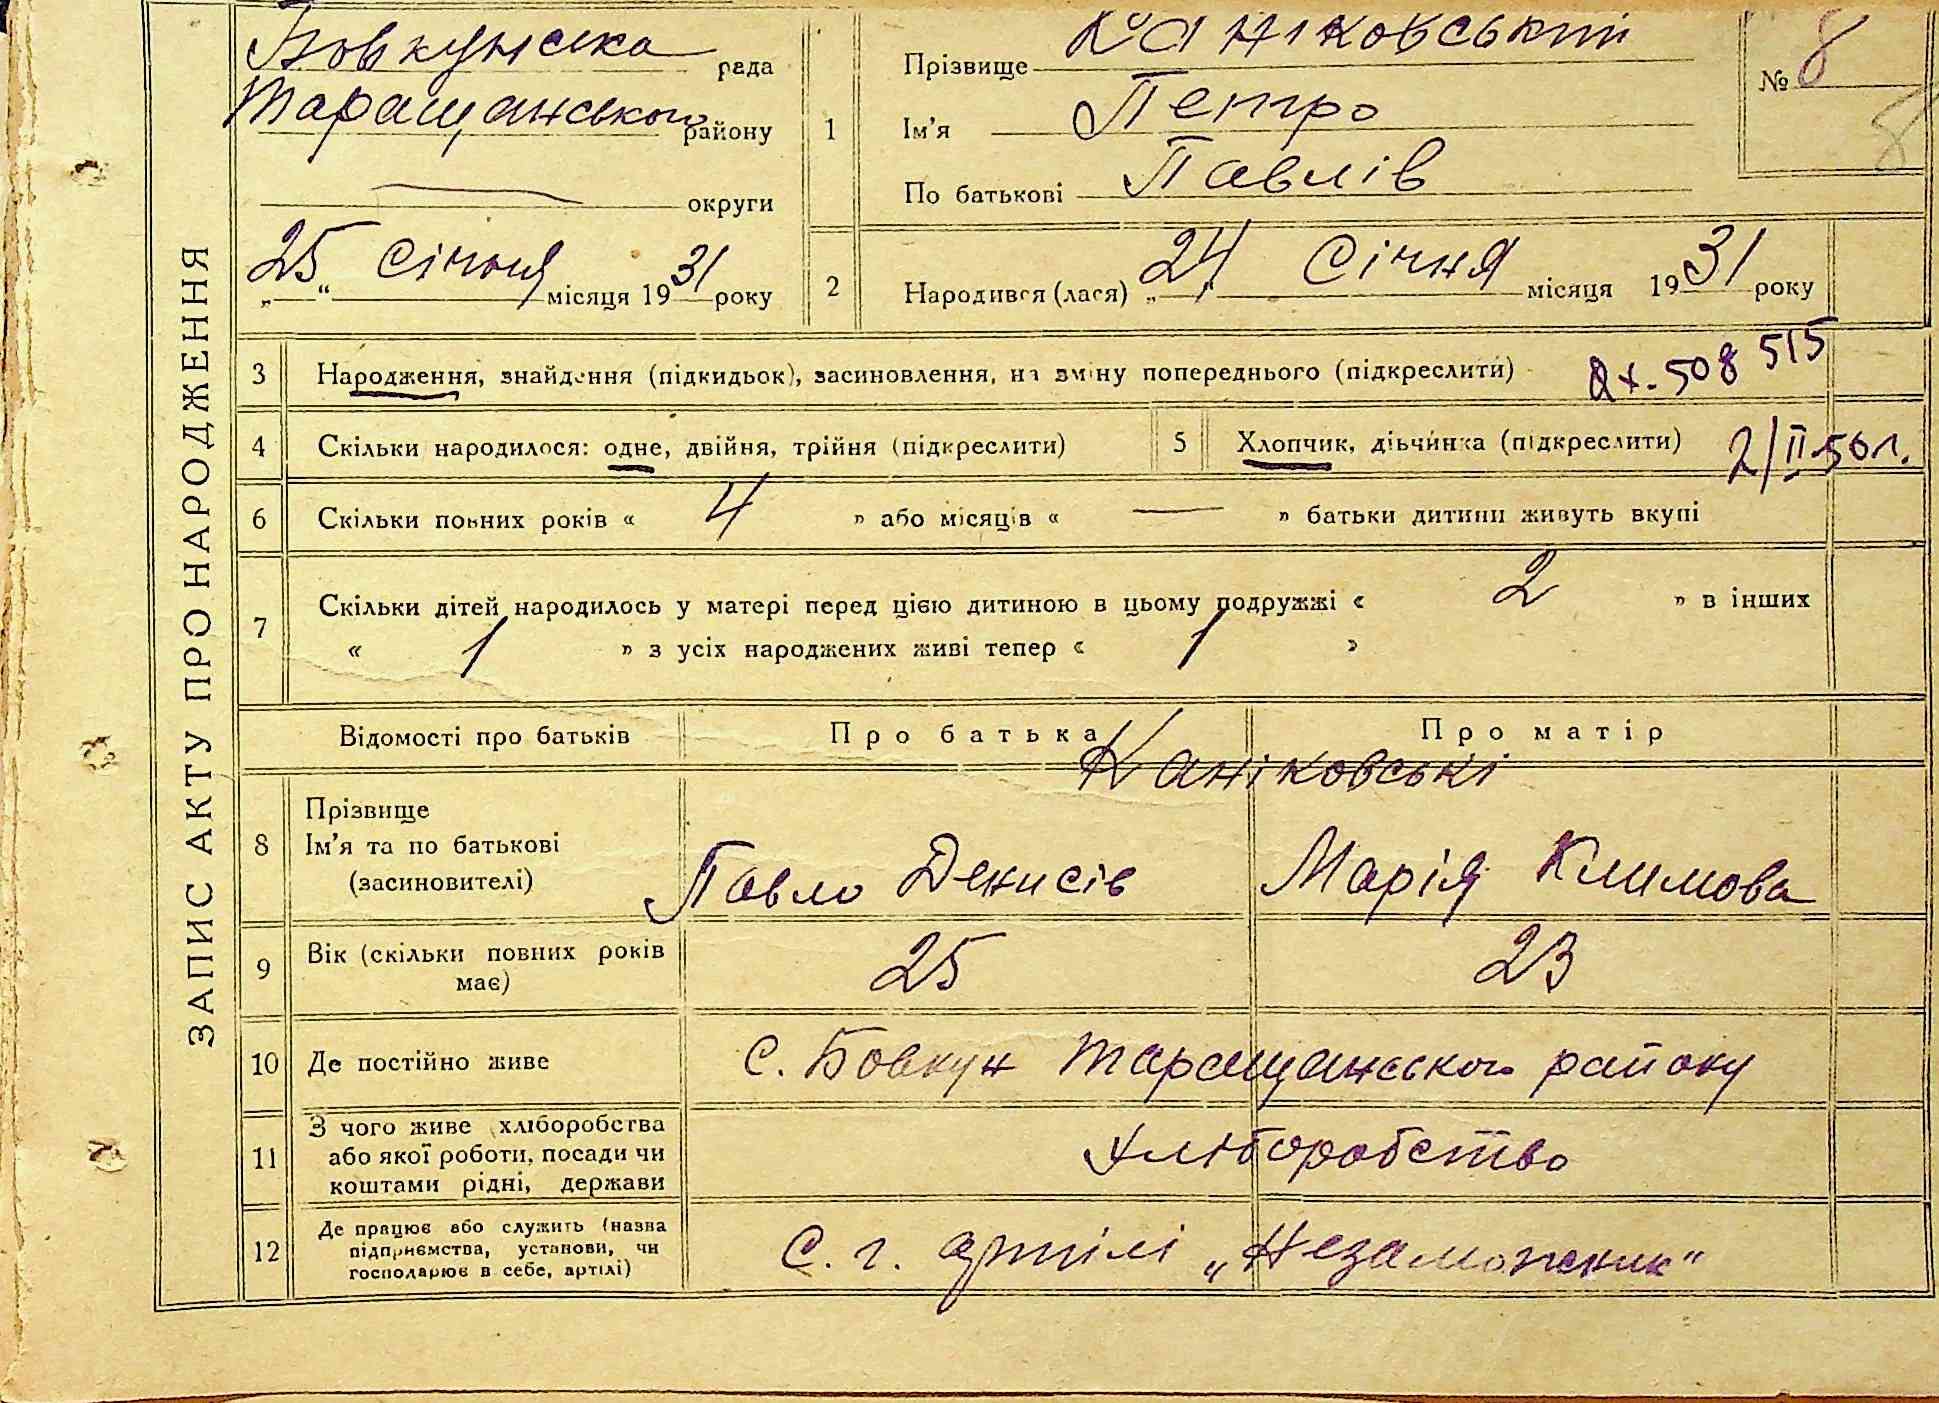 ЗАПИС АКТУ ПРО НАРОДЖЕННЯ
Бовкунська рада
Таращанського району
— округи
„25“ січня місяця 1931 року
1
Прізвище Каніковський
Ім'я Петро
По батькові Павлів
№ 8
8
2 Народився (лася) „24“ Січня місяця 1931 року
3 Народження, знайдення (підкидьок), засиновлення, на зміну попереднього (підкреслити) 508 515
4 Скільки народилося: одне, двійня, трійня (підкреслити) 5 Хлопчик, дівчинка (підкреслити) 2/II-50 г.
6 Скільки повних років « 4 » або місяців « — » батьки дитини живуть вкупі
7 Скільки дітей народилось у матері перед цією дитиною в цьому подружжі « 2 » в інших
« 1 » з усіх народжених живі тепер « 1 »
Відомості про батьків Про батька Про матір
Каніковські
8 Прізвище
Ім'я та по батькові
(засиновителі)
Павло Денисів Марія Климова
9 Вік (скільки повних років має) 25 23
10 Де постійно живе С. Бовкун Таращанського району
11 З чого живе хліборобства
або якої роботи, посади чи
коштами рідні, держави
Хліборобство
12 Де працює або служить (назва
підприємства, установи, чи
господарює в себе, артілі)
С. г. артілі „Незаможник“